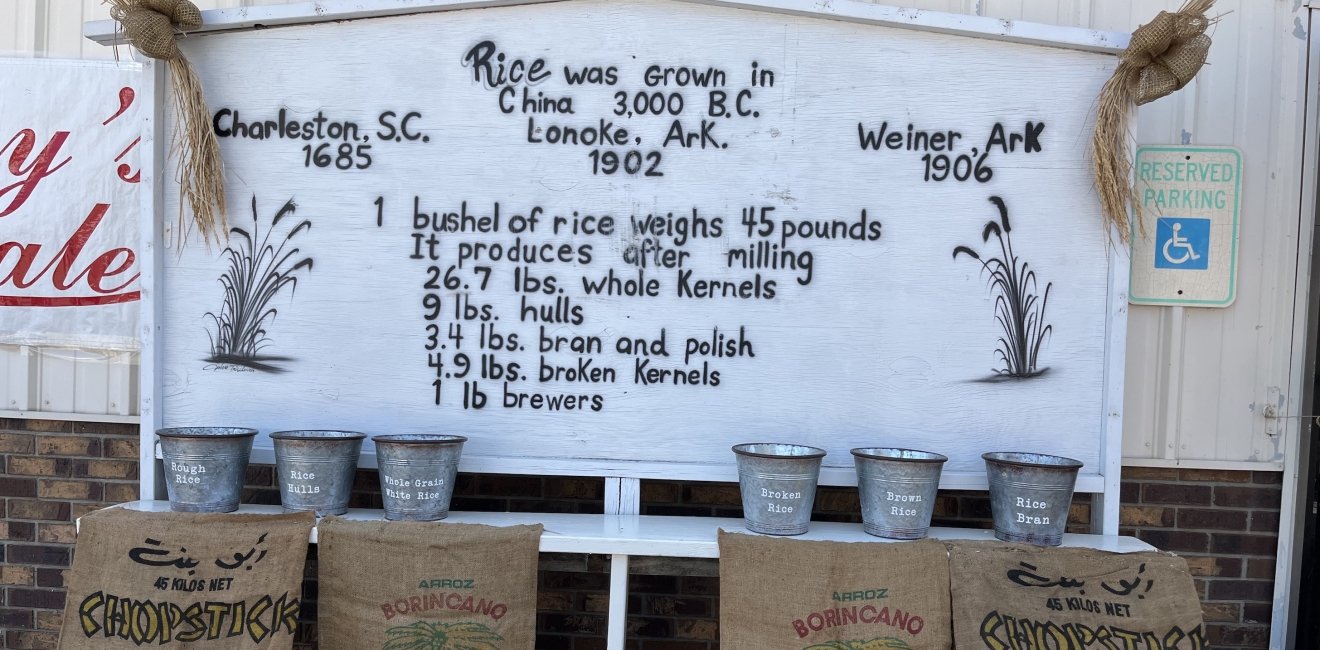 Rice was Grown in
China 3,000 B.C.
Charleston, S.C.
1685
Lonoke, Ark.
1902
Weiner, Ark
1906
1 bushel of rice weighs 45 pounds
It produces after milling
26.7 lbs. whole Kernels
9 lbs. hulls
3.4 lbs. bran and polish
4.9 lbs. broken Kernels
1 lb brewers
y's
ale
RESERVED
PARKING
Rough
Rice
Rice
Hulls
Whole Grain
White Rice
Broken
Rice
Brown
Rice
Rice
Bran
أبو بنت
45 KILOS NET
CHOPSTICK
ARROZ
BORINCANO
ARROZ
BORINCANO
أبو بنت
45 KILOS NET
CHOPSTICK